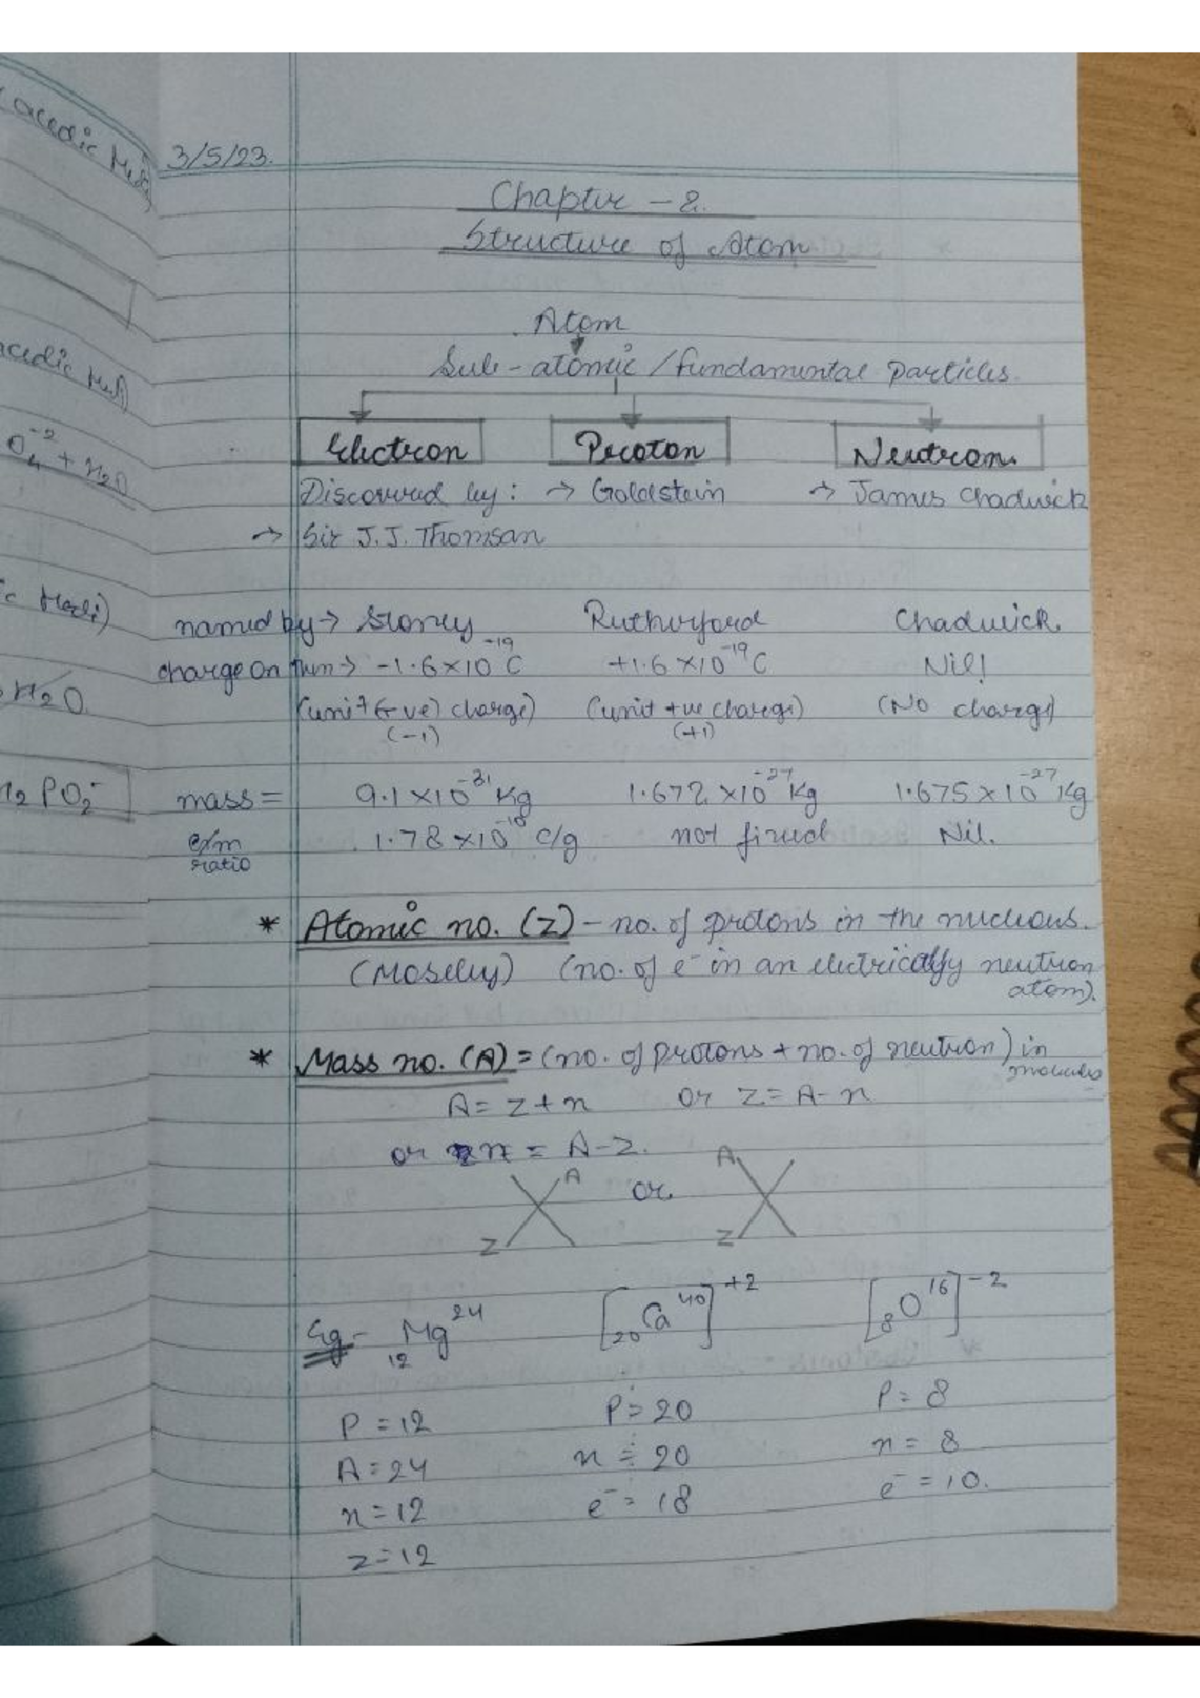 3/5/23.
Chapter - 2.
Structure of Atom
Atom
Sub-atomic / fundamental particles.
Electron Proton Neutron.
Discovered by : → Goldstein → James Chadwick
→ Sir J.J. Thomson
named by → Stoney Rutherford Chadwick.
charge on them → -1.6×10⁻¹⁹ C +1.6×10⁻¹⁹ C Nil!
(unit (-ve) charge) (unit +ve charge) (No charge)
(-1) (+1)
mass = 9.1×10⁻³¹ Kg 1.672×10⁻²⁷ Kg 1.675×10⁻²⁷ Kg
e/m ratio 1.78×10⁻¹⁸ C/g not fixed Nil.
* Atomic no. (Z) - no. of protons in the nucleous.
(Moseley) (no. of e⁻ in an electrically neutron
atom).
* Mass no. (A) = (no. of protons + no. of neutron) in
A = Z + n or Z = A - n
or n = A - Z.
X A or. A X
Z Z
Eg - ₁₂Mg²⁴ [₂₀Ca⁴⁰]⁺² [₈O¹⁶]⁻²
P = 12 P = 20 P = 8
A = 24 n = 20 n = 8
n = 12 e⁻ = 18 e⁻ = 10.
Z = 12
acedic
acedic
O₄⁻² + H₂O
H₂O
H₂PO₂⁻